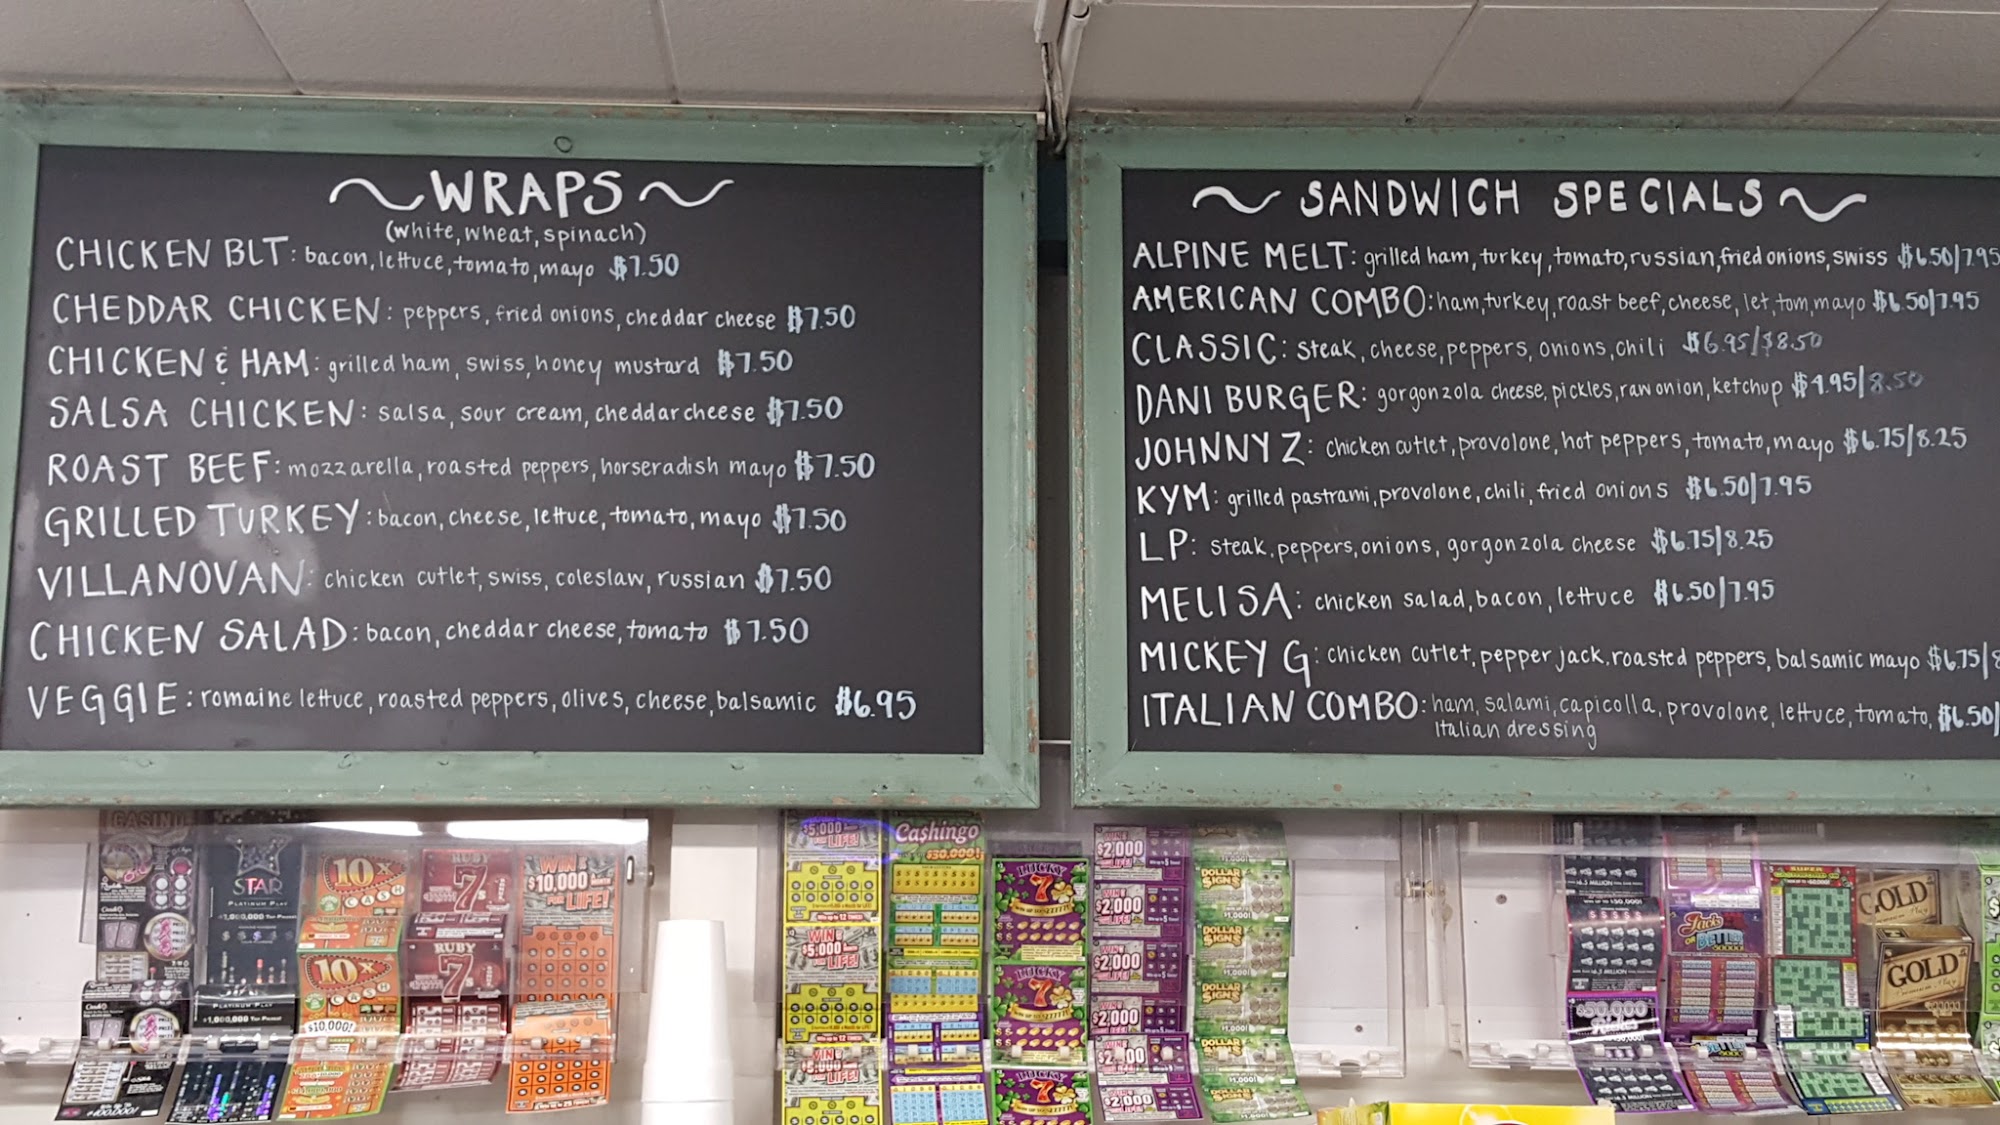 WRAPS
(white, wheat, spinach)
CHICKEN BLT: bacon, lettuce, tomato, mayo $7.50
CHEDDAR CHICKEN: peppers, fried onions, cheddar cheese $7.50
CHICKEN & HAM: grilled ham, swiss, honey mustard $7.50
SALSA CHICKEN: salsa, sour cream, cheddar cheese $7.50
ROAST BEEF: mozzarella, roasted peppers, horseradish mayo $7.50
GRILLED TURKEY: bacon, cheese, lettuce, tomato, mayo $7.50
VILLANOVAN: chicken cutlet, swiss, coleslaw, russian $7.50
CHICKEN SALAD: bacon, cheddar cheese, tomato $7.50
VEGGIE: romaine lettuce, roasted peppers, olives, cheese, balsamic $6.95
SANDWICH SPECIALS
ALPINE MELT: grilled ham, turkey, tomato, russian, fried onions, swiss $6.50/7.95
AMERICAN COMBO: ham, turkey, roast beef, cheese, let, tom, mayo $6.50/7.95
CLASSIC: steak, cheese, peppers, onions, chili $6.95/$8.50
DANI BURGER: gorgonzola cheese, pickles, raw onion, ketchup $4.95/8.50
JOHNNY Z: chicken cutlet, provolone, hot peppers, tomato, mayo $6.75/8.25
KYM: grilled pastrami, provolone, chili, fried onions $6.50/7.95
LP: steak, peppers, onions, gorgonzola cheese $6.75/8.25
MELISA: chicken salad, bacon, lettuce $6.50/7.95
MICKEY G: chicken cutlet, pepper jack, roasted peppers, balsamic mayo $6.75/8
ITALIAN COMBO: ham, salami, capicolla, provolone, lettuce, tomato, $6.50/
Italian dressing
CASINO
STAR
PLATINUM PLAY
$1,000,000 TOP PRIZE!
10X
CASH
10X
CASH
$10,000!
RUBY
7s
RUBY
7
WIN $
$10,000
FOR LIFE!
$5,000
LIFE!
WIN
$5,000
LIFE!
WIN
$5,000
LIFE!
Cashingo
$30,000!
LUCKY
7
LUCKY
7
LUCKY
7
$2,000
LIFE!
$2,000
$2,000
$2,000
$2,000
DOLLAR
SIGNS
$1,000!
DOLLAR
SIGNS
$1,000!
DOLLAR
SIGNS
$1,000!
DOLLAR
SIGNS
$1,000!
Jacks
OR BETTER
SUPER
GOLD
GOLD